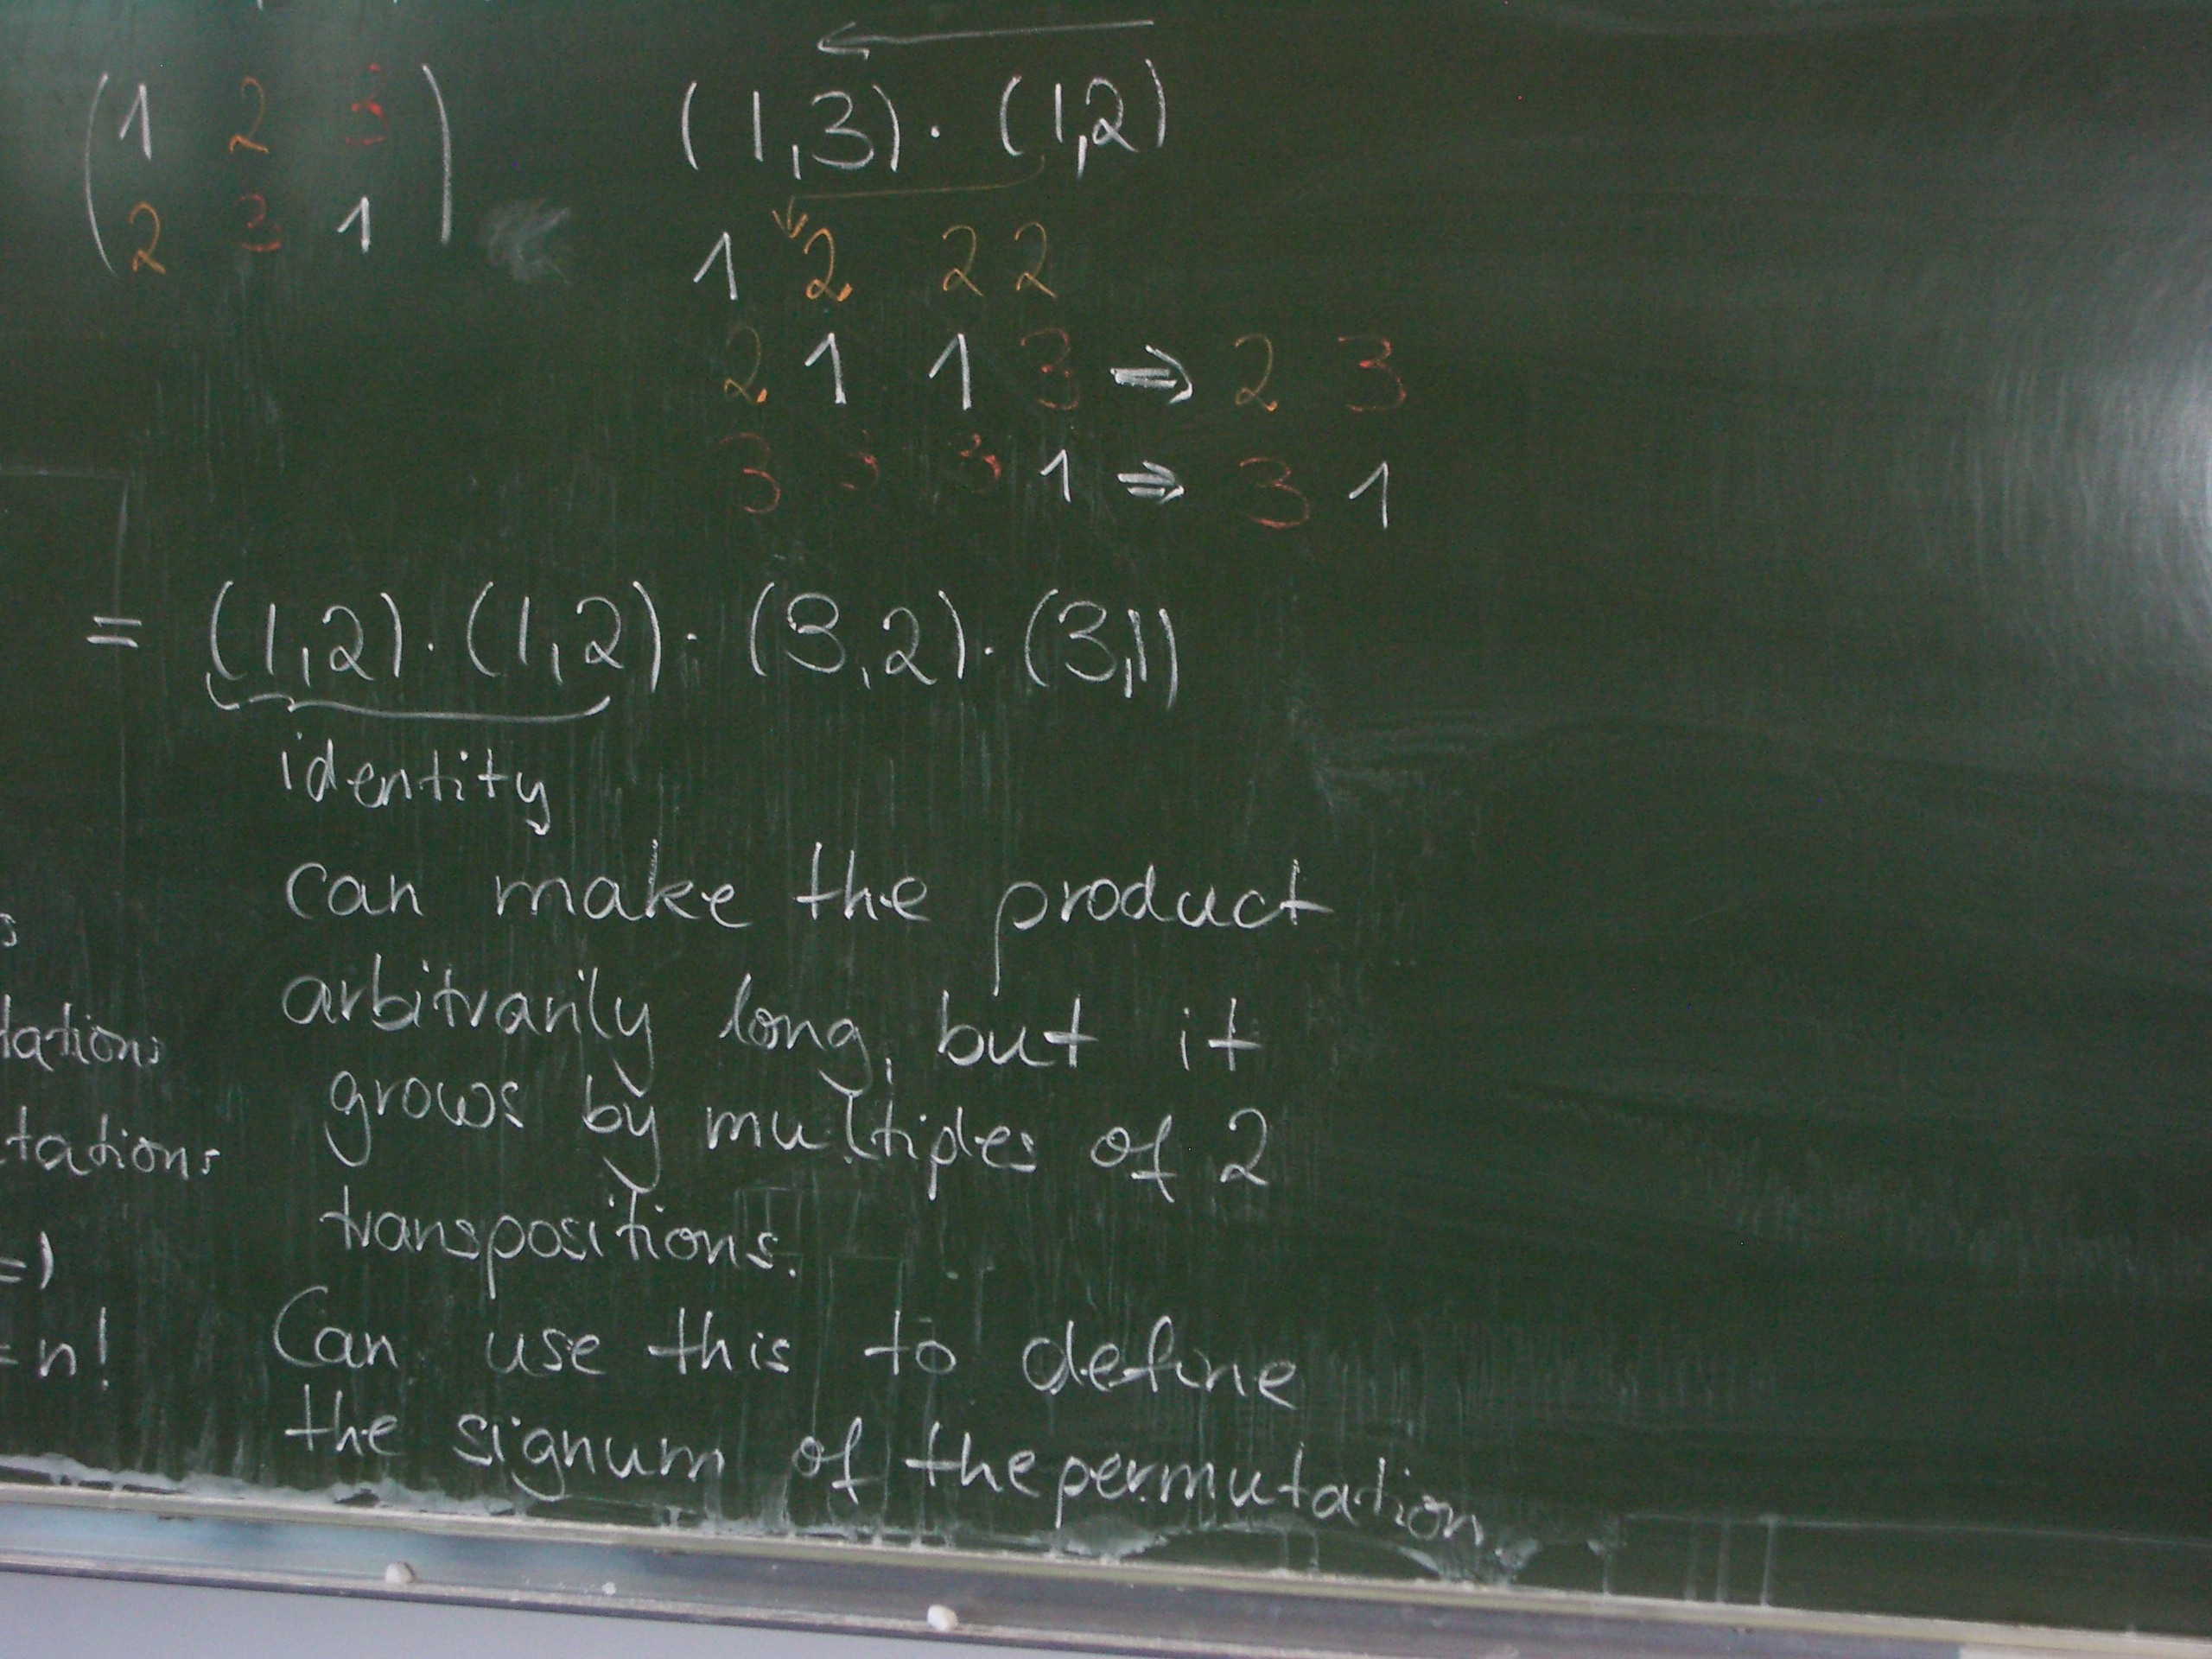 ( 1 2 3 )
( 2 3 1 )
(1,3) · (1,2)
1 2 2 2
2 1 1 3 ⇒ 2 3
3 3 3 1 ⇒ 3 1
= (1,2) · (1,2) · (3,2) · (3,1)
identity
can make the product
arbitrarily long, but it
grows by multiples of 2
transpositions.
Can use this to define
the signum of the permutation
s
tations
tations
=)
=n!